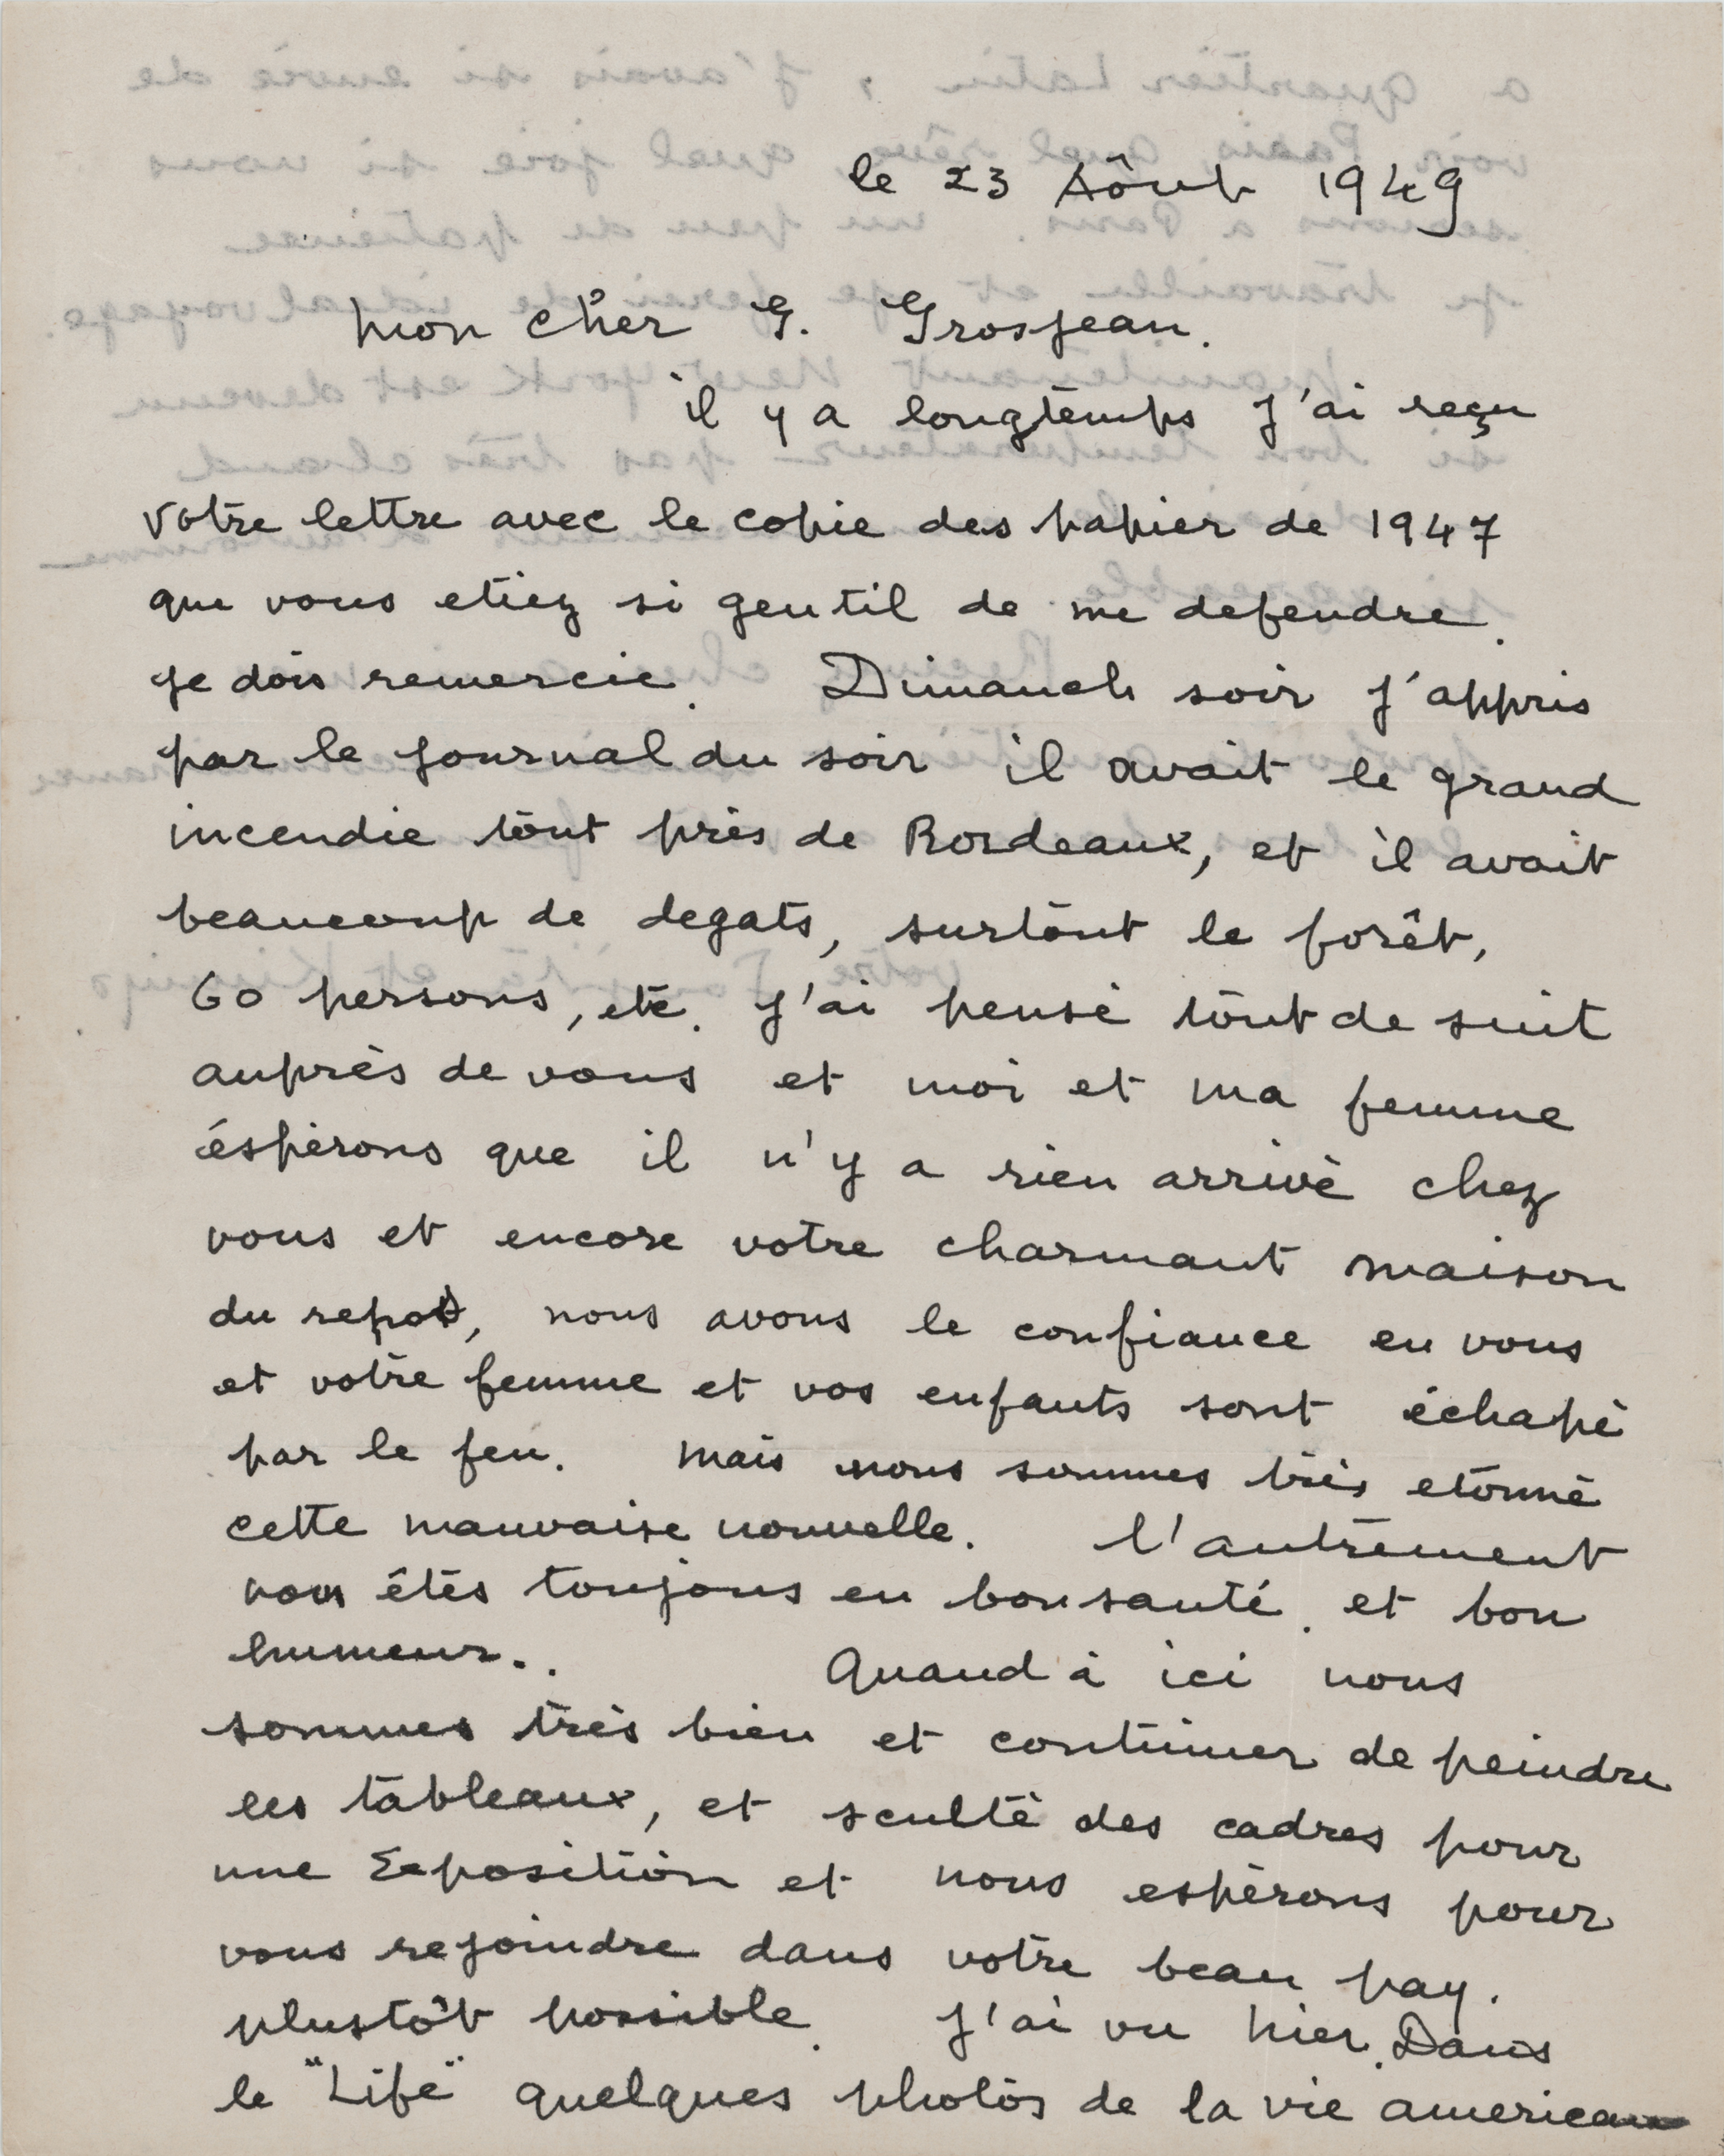 le 23 Aôut 1949
mon cher G. Grosjean.
il y a longtemps J'ai reçu
votre lettre avec le copie des papier de 1947
que vous etiez si gentil de me defendre.
Je dois remercie. Dimanch soir J'appris
par le journal du soir il avait le grand
incendie tout près de Bordeaux, et il avait
beaucoup de degats, surtout le forêt,
60 persons, etc. J'ai pensé tout de suit
auprès de vous et moi et ma femme
éspèrons que il n'y a rien arrivè chez
vous et encore votre charmant maison
du repos, nous avons le confiance en vous
et votre femme et vos enfants sont échapè
par le feu. mais nous sommes très etonnè
cette mauvaise nouvelle. l'autrement
vous êtes toujours en bon santé. et bon
humeur..
Quand à ici nous
sommes très bien et continuer de peindre
les tableaux, et scultè des cadres pour
une Exposition et nous espèrons pour
vous rejoindre dans votre beau pay.
plustôt possible. J'ai vu hier. Dans
le "Life" quelques photos de la vie american